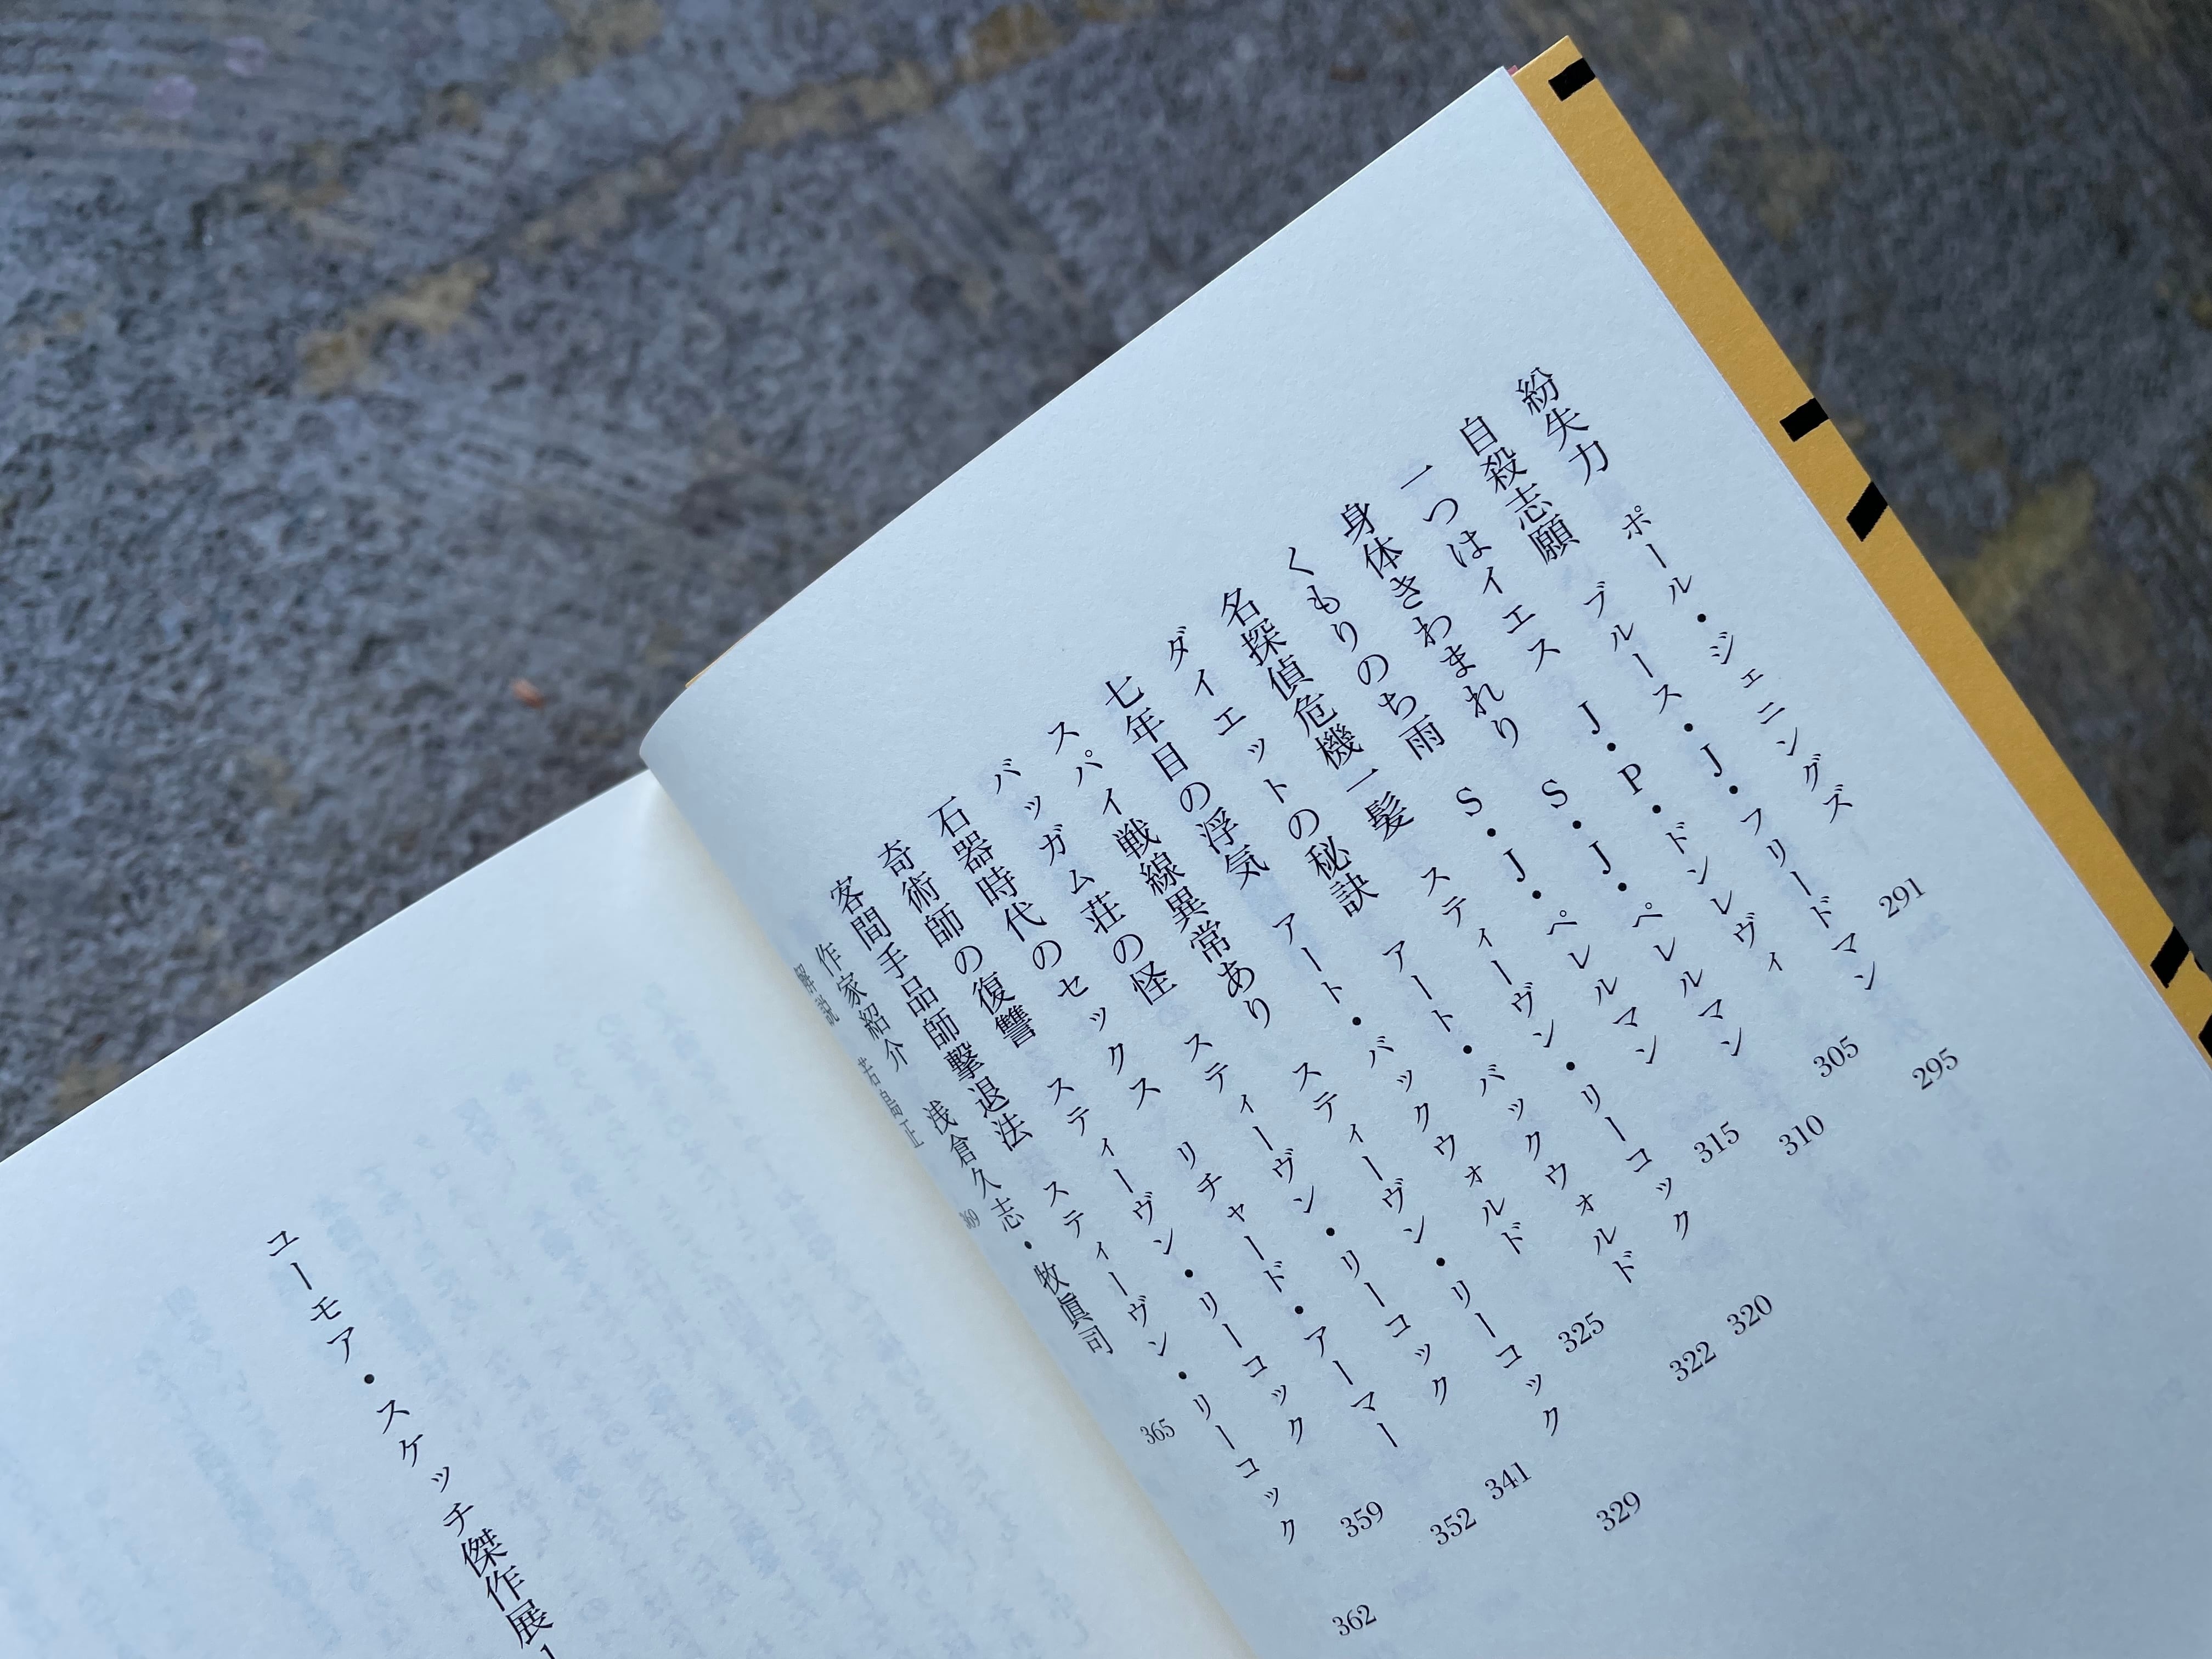 紛失力 ポール・ジェニングズ 291
自殺志願 ブルース・J・フリードマン 295
一つはイエス J・P・ドンレヴィ 305
身体きわまれり S・J・ペレルマン 310
くもりのち雨 S・J・ペレルマン 315
名探偵危機一髪 スティーヴン・リーコック 320
ダイエットの秘訣 アート・バックウォルド 322
七年目の浮気 アート・バックウォルド 325
スパイ戦線異常あり スティーヴン・リーコック 329
バッガム荘の怪 スティーヴン・リーコック 341
石器時代のセックス リチャード・アーマー 352
奇術師の復讐 スティーヴン・リーコック 359
客間手品師撃退法 スティーヴン・リーコック 362
作家紹介 浅倉久志・牧眞司 365
解説 若島正 369
ユーモア・スケッチ傑作展